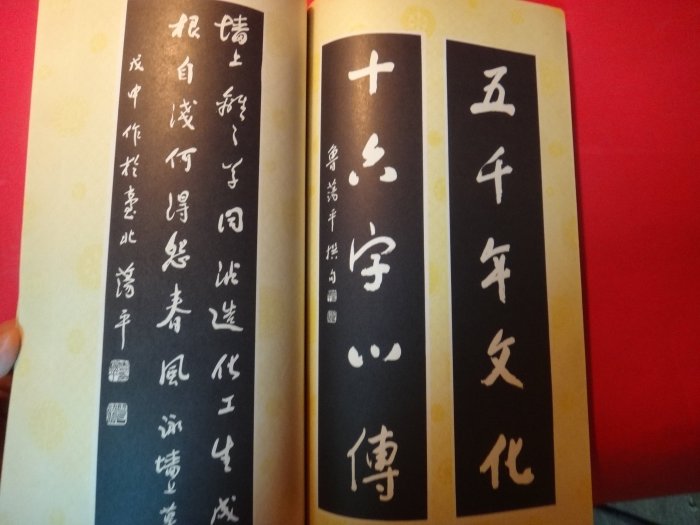 五千年文化
十六字心傳
魯蕩平撰句
墻上離〻草同沾造化工生成
根自淺何得怨春風詠墻上草
戊申作於臺北蕩平